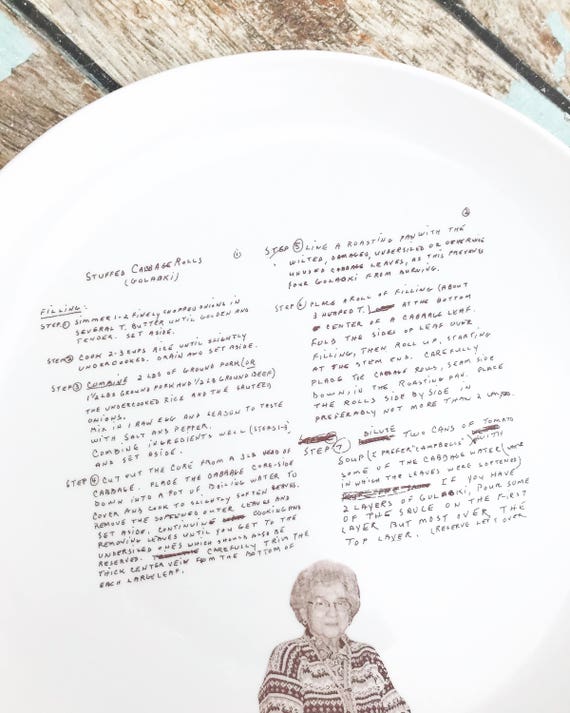 ①
STUFFED CABBAGE ROLLS
(GOLABKI)
FILLING:
STEP ① SIMMER 1-2 FINELY CHOPPED ONIONS IN
SEVERAL T. BUTTER UNTIL GOLDEN AND
TENDER. SET ASIDE.
STEP ② COOK 2-3 CUPS RICE UNTIL SLIGHTLY
UNDERCOOKED. DRAIN AND SET ASIDE.
STEP ③ COMBINE 2 LBS OF GROUND PORK (OR
1 1/2 LBS GROUND PORK AND 1/2 LB GROUND BEEF)
THE UNDERCOOKED RICE AND THE SAUTEED
ONIONS.
MIX IN 1 RAW EGG AND SEASON TO TASTE
WITH SALT AND PEPPER.
COMBINE INGREDIENTS WELL (STEPS 1-3)
AND SET ASIDE.
STEP ④ CUT OUT THE CORE FROM A 3 LB HEAD OF
CABBAGE. PLACE THE CABBAGE CORE-SIDE
DOWN INTO A POT OF BOILING WATER TO
COVER AND COOK TO SLIGHTLY SOFTEN LEAVES.
REMOVE THE SOFTENED OUTER LEAVES AND
SET ASIDE, CONTINUING COOKING AND
REMOVING LEAVES UNTIL YOU GET TO THE
UNDERSIZED ONES WHICH SHOULD ALSO BE
RESERVED. CAREFULLY TRIM THE
THICK CENTER VEIN FROM THE BOTTOM OF
EACH LARGE LEAF.
②
STEP ⑤ LINE A ROASTING PAN WITH THE
WILTED, DAMAGED, UNDERSIZED OR OTHERWISE
UNUSED CABBAGE LEAVES, AS THIS PREVENTS
YOUR GOLABKI FROM BURNING.
STEP ⑥ PLACE A ROLL OF FILLING (ABOUT
3 HUMPED T.) AT THE BOTTOM
CENTER OF A CABBAGE LEAF.
FOLD THE SIDES OF LEAF OVER
FILLING, THEN ROLL UP, STARTING
AT THE STEM END. CAREFULLY
PLACE THE CABBAGE ROLLS, SEAM SIDE
DOWN, IN THE ROASTING PAN. PLACE
THE ROLLS SIDE BY SIDE IN
PREFERABLY NOT MORE THAN 2 LAYERS.
STEP ⑦ DILUTE TWO CANS OF TOMATO
SOUP (I PREFER "CAMPBELLS") WITH
SOME OF THE CABBAGE WATER (WATER
IN WHICH THE LEAVES WERE SOFTENED)
IF YOU HAVE
2 LAYERS OF GOLABKI, POUR SOME
OF THE SAUCE ON THE FIRST
LAYER BUT MOST OVER THE
TOP LAYER. (RESERVE LEFT OVER